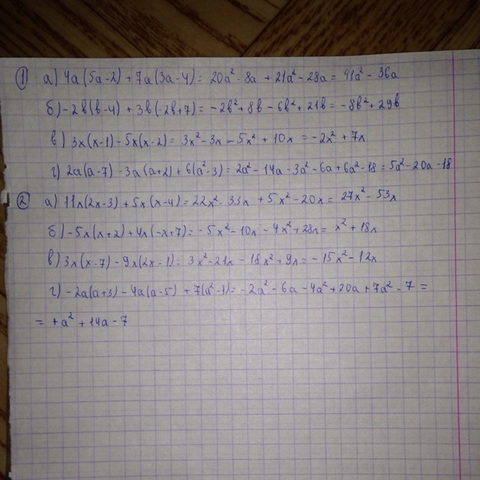 ① а) 4a(5a-2) + 7a(3a-4) = 20a² - 8a + 21a² - 28a = 41a² - 36a
б) -2b(b-4) + 3b(-2b+7) = -2b² + 8b - 6b² + 21b = -8b² + 29b
в) 3x(x-1) - 5x(x-2) = 3x² - 3x - 5x² + 10x = -2x² + 7x
г) 2a(a-7) - 3a(a+2) + 6(a²-3) = 2a² - 14a - 3a² - 6a + 6a² - 18 = 5a² - 20a - 18
② а) 11x(2x-3) + 5x(x-4) = 22x² - 33x + 5x² - 20x = 27x² - 53x
б) -5x(x+2) + 4x(-x+7) = -5x² - 10x - 4x² + 28x = x² + 18x
в) 3x(x-7) - 9x(2x-1) = 3x² - 21x - 18x² + 9x = -15x² - 12x
г) -2a(a+3) - 4a(a-5) + 7(a²-1) = -2a² - 6a - 4a² + 20a + 7a² - 7 =
= +a² + 14a - 7